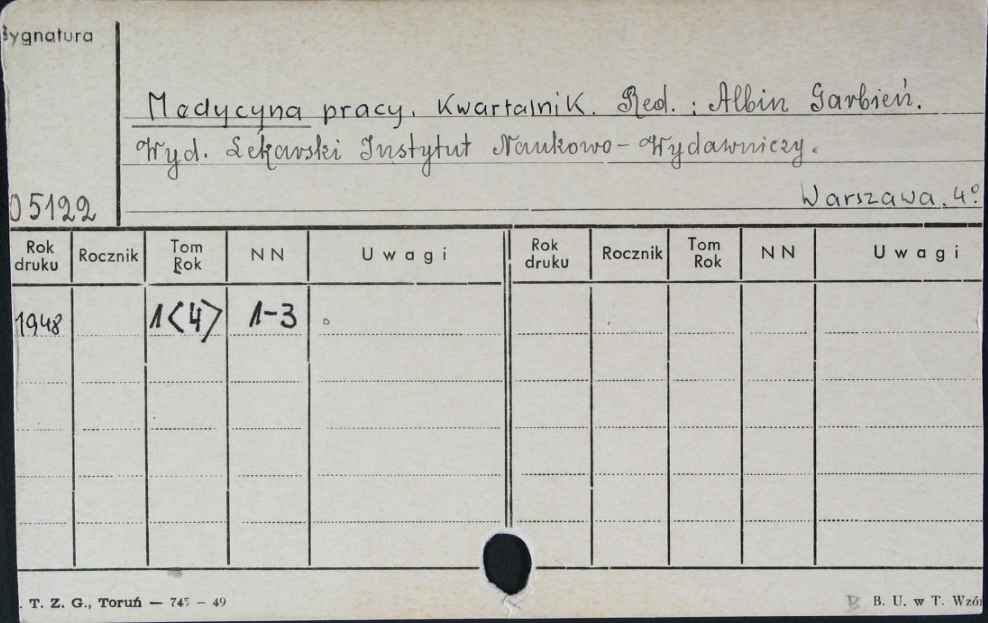 Sygnatura
Medycyna pracy. Kwartalnik. Red.: Albin Garbień.
Wyd. Lekarski Instytut Naukowo-Wydawniczy.
05122 Warszawa. 4°
Rok druku Rocznik Tom Rok NN Uwagi Rok druku Rocznik Tom Rok NN Uwagi
1948 1<4> 1-3
. T. Z. G., Toruń — 745 - 49 B. U. w T. Wzór